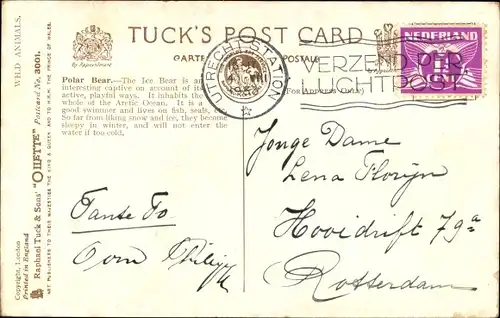 TUCK'S POST CARD
CARTE POSTALE
By Appointment
(For Address Only)
NEDERLAND
CENT
UTRECHT STATION
VERZEND PER
LUCHTPOST
WILD ANIMALS.
Postcard No. 3001.
"OILETTE"
Raphael Tuck & Sons'
ART PUBLISHERS TO THEIR MAJESTIES THE KING & QUEEN, AND TO H.R.H. THE PRINCE OF WALES.
Copyright, London
Printed in England
Polar Bear.—The Ice Bear is an
interesting captive on account of its
active, playful ways. It inhabits the
whole of the Arctic Ocean. It is a
good swimmer and lives on fish, seals,
So far from liking snow and ice, they become
sleepy in winter, and will not enter the
water if too cold.
Tante To
Oom Philip
Jonge Dame
Lena Florijn
Hooidrift 79a
Rotterdam